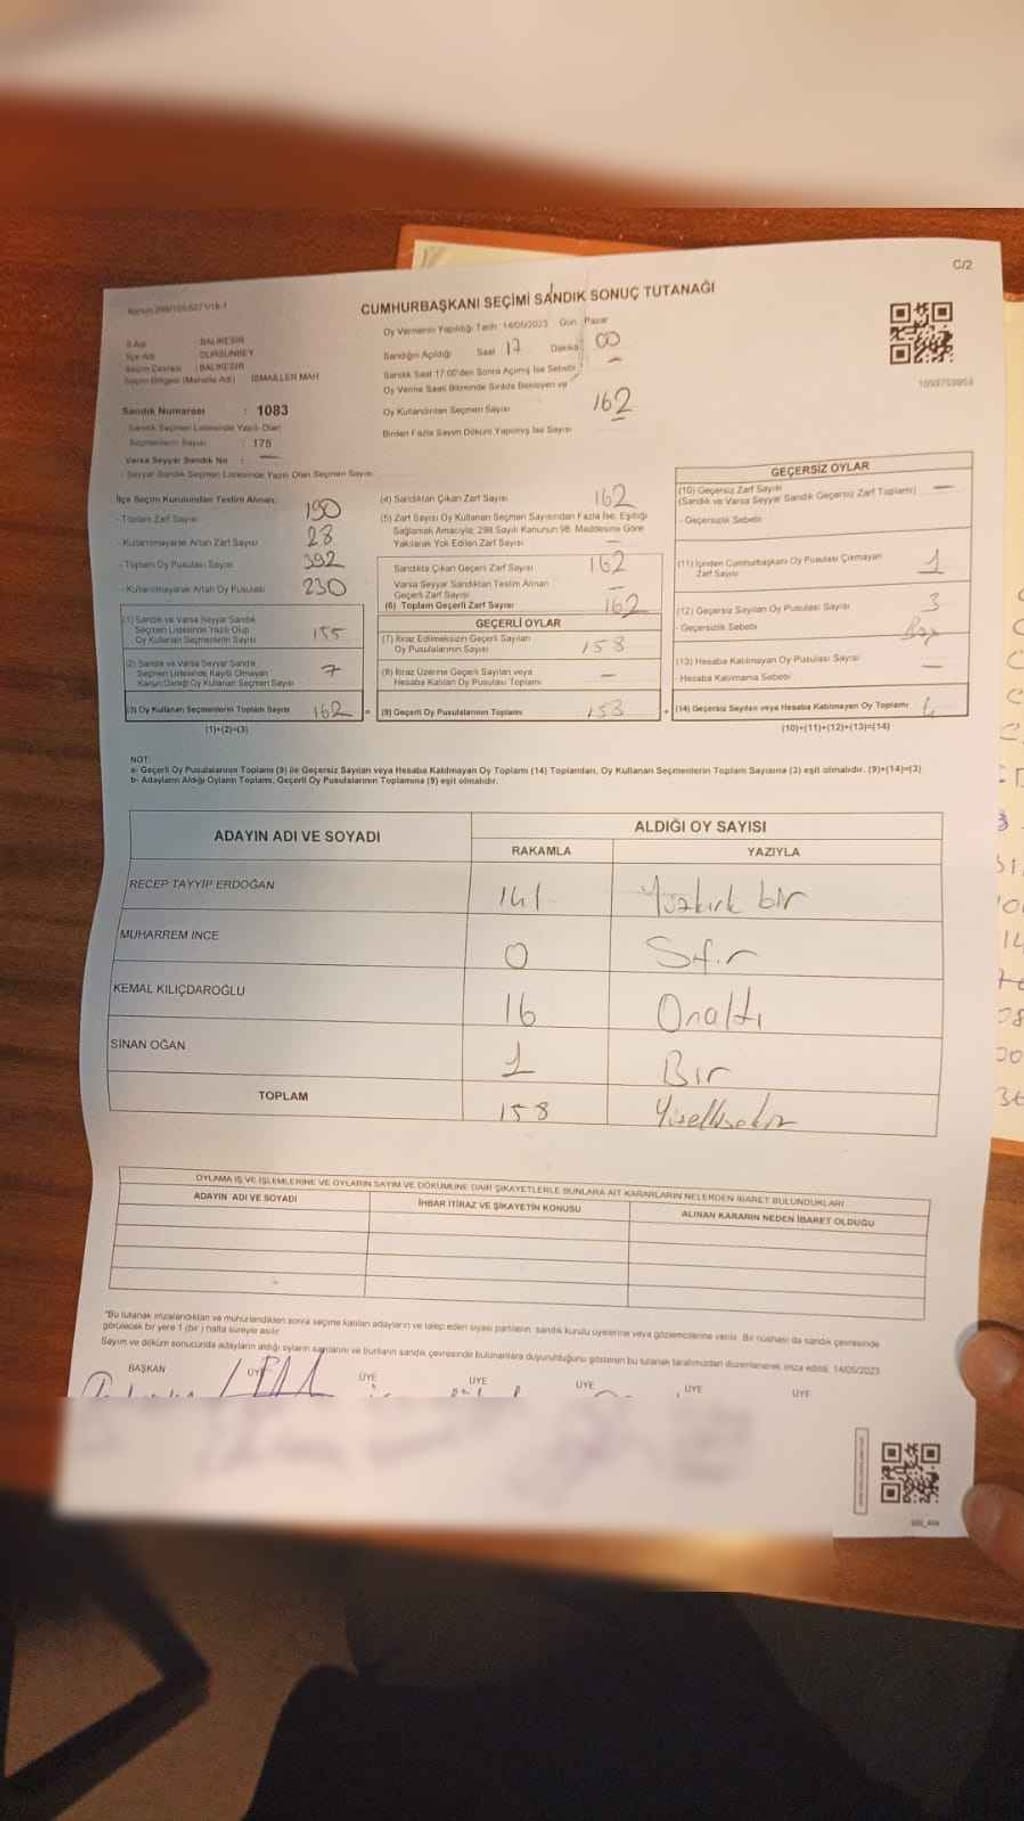 C/2
CUMHURBAŞKANI SEÇİMİ SANDIK SONUÇ TUTANAĞI
Oy Vermenin Yapıldığı Tarih: 14/05/2023 Gün: Pazar
İl Adı : BALIKESİR
İlçe Adı : DURSUNBEY
Seçim Çevresi : BALIKESİR
Seçim Bölgesi (Mahalle Adı) : İSMAİLLER MAH
Sandığın Açıldığı Saat 17 Dakika 00
Sandık Saat 17:00'den Sonra Açılmış İse Sebebi : —
Oy Verme Saati Bitiminde Sırada Bekleyen ve
Oy Kullandırılan Seçmen Sayısı 162
Birden Fazla Sayım Döküm Yapılmış İse Sayısı —
Sandık Numarası : 1083
Sandık Seçmen Listesinde Yazılı Olan
Seçmenlerin Sayısı : 175
Varsa Seyyar Sandık No : —
- Seyyar Sandık Seçmen Listesinde Yazılı Olan Seçmen Sayısı
İlçe Seçim Kurulundan Teslim Alınan;
- Toplam Zarf Sayısı 190
- Kullanılmayarak Artan Zarf Sayısı 28
- Toplam Oy Pusulası Sayısı 392
- Kullanılmayarak Artan Oy Pusulası 230
(1) Sandık ve Varsa Seyyar Sandık
Seçmen Listesinde Yazılı Olup
Oy Kullanan Seçmenlerin Sayısı 155
(2) Sandık ve Varsa Seyyar Sandık
Seçmen Listesinde Kayıtlı Olmayan
Kanun Gereği Oy Kullanan Seçmen Sayısı 7
(3) Oy Kullanan Seçmenlerin Toplam Sayısı 162
(1)+(2)=(3)
=
(4) Sandıktan Çıkan Zarf Sayısı 162
(5) Zarf Sayısı Oy Kullanan Seçmen Sayısından Fazla İse; Eşitliği
Sağlamak Amacıyla, 298 Sayılı Kanunun 98. Maddesine Göre
Yakılarak Yok Edilen Zarf Sayısı —
Sandıkta Çıkan Geçerli Zarf Sayısı 162
Varsa Seyyar Sandıktan Teslim Alınan
Geçerli Zarf Sayısı —
(6) Toplam Geçerli Zarf Sayısı 162
GEÇERLİ OYLAR
(7) İtiraz Edilmeksizin Geçerli Sayılan
Oy Pusulalarının Sayısı 158
(8) İtiraz Üzerine Geçerli Sayılan veya
Hesaba Katılan Oy Pusulası Toplamı —
(9) Geçerli Oy Pusulalarının Toplamı 158
+
GEÇERSİZ OYLAR
(10) Geçersiz Zarf Sayısı —
(Sandık ve Varsa Seyyar Sandık Geçersiz Zarf Toplamı)
- Geçersizlik Sebebi
(11) İçinden Cumhurbaşkanı Oy Pusulası Çıkmayan
Zarf Sayısı 1
(12) Geçersiz Sayılan Oy Pusulası Sayısı 3
- Geçersizlik Sebebi
(13) Hesaba Katılmayan Oy Pusulası Sayısı —
- Hesaba Katılmama Sebebi
(14) Geçersiz Sayılan veya Hesaba Katılmayan Oy Toplamı 4
(10)+(11)+(12)+(13)=(14)
NOT:
a- Geçerli Oy Pusulalarının Toplamı (9) ile Geçersiz Sayılan veya Hesaba Katılmayan Oy Toplamı (14) Toplamları, Oy Kullanan Seçmenlerin Toplam Sayısına (3) eşit olmalıdır. (9)+(14)=(3)
b- Adayların Aldığı Oyların Toplamı, Geçerli Oy Pusulalarının Toplamına (9) eşit olmalıdır.
ADAYIN ADI VE SOYADI
ALDIĞI OY SAYISI
RAKAMLA YAZIYLA
RECEP TAYYİP ERDOĞAN 141 Yüzkırk bir
MUHARREM İNCE 0 Sıfır
KEMAL KILIÇDAROĞLU 16 Onaltı
SİNAN OĞAN 1 Bir
TOPLAM 158 Yüzellisekiz
OYLAMA İŞ VE İŞLEMLERİNE VE OYLARIN SAYIM VE DÖKÜMÜNE DAİR ŞİKAYETLERLE BUNLARA AİT KARARLARIN NELERDEN İBARET BULUNDUKLARI
ADAYIN ADI VE SOYADI
İHBAR İTİRAZ VE ŞİKAYETİN KONUSU
ALINAN KARARIN NEDEN İBARET OLDUĞU
"Bu tutanak imzalandıktan ve mühürlendikten sonra seçime katılan adayların ve talep eden siyasi partilerin sandık kurulu üyelerine veya gözlemcilerine verilir. Bir nüshası da sandık çevresinde
görülecek bir yere 1 (bir) hafta süreyle asılır.
Sayım ve döküm sonucunda adayların aldığı oyların sayılarını ve bunların sandık çevresinde bulunanlara duyurulduğunu gösteren bu tutanak tarafımızdan düzenlenerek imza edildi. 14/05/2023
BAŞKAN ÜYE ÜYE ÜYE ÜYE ÜYE ÜYE